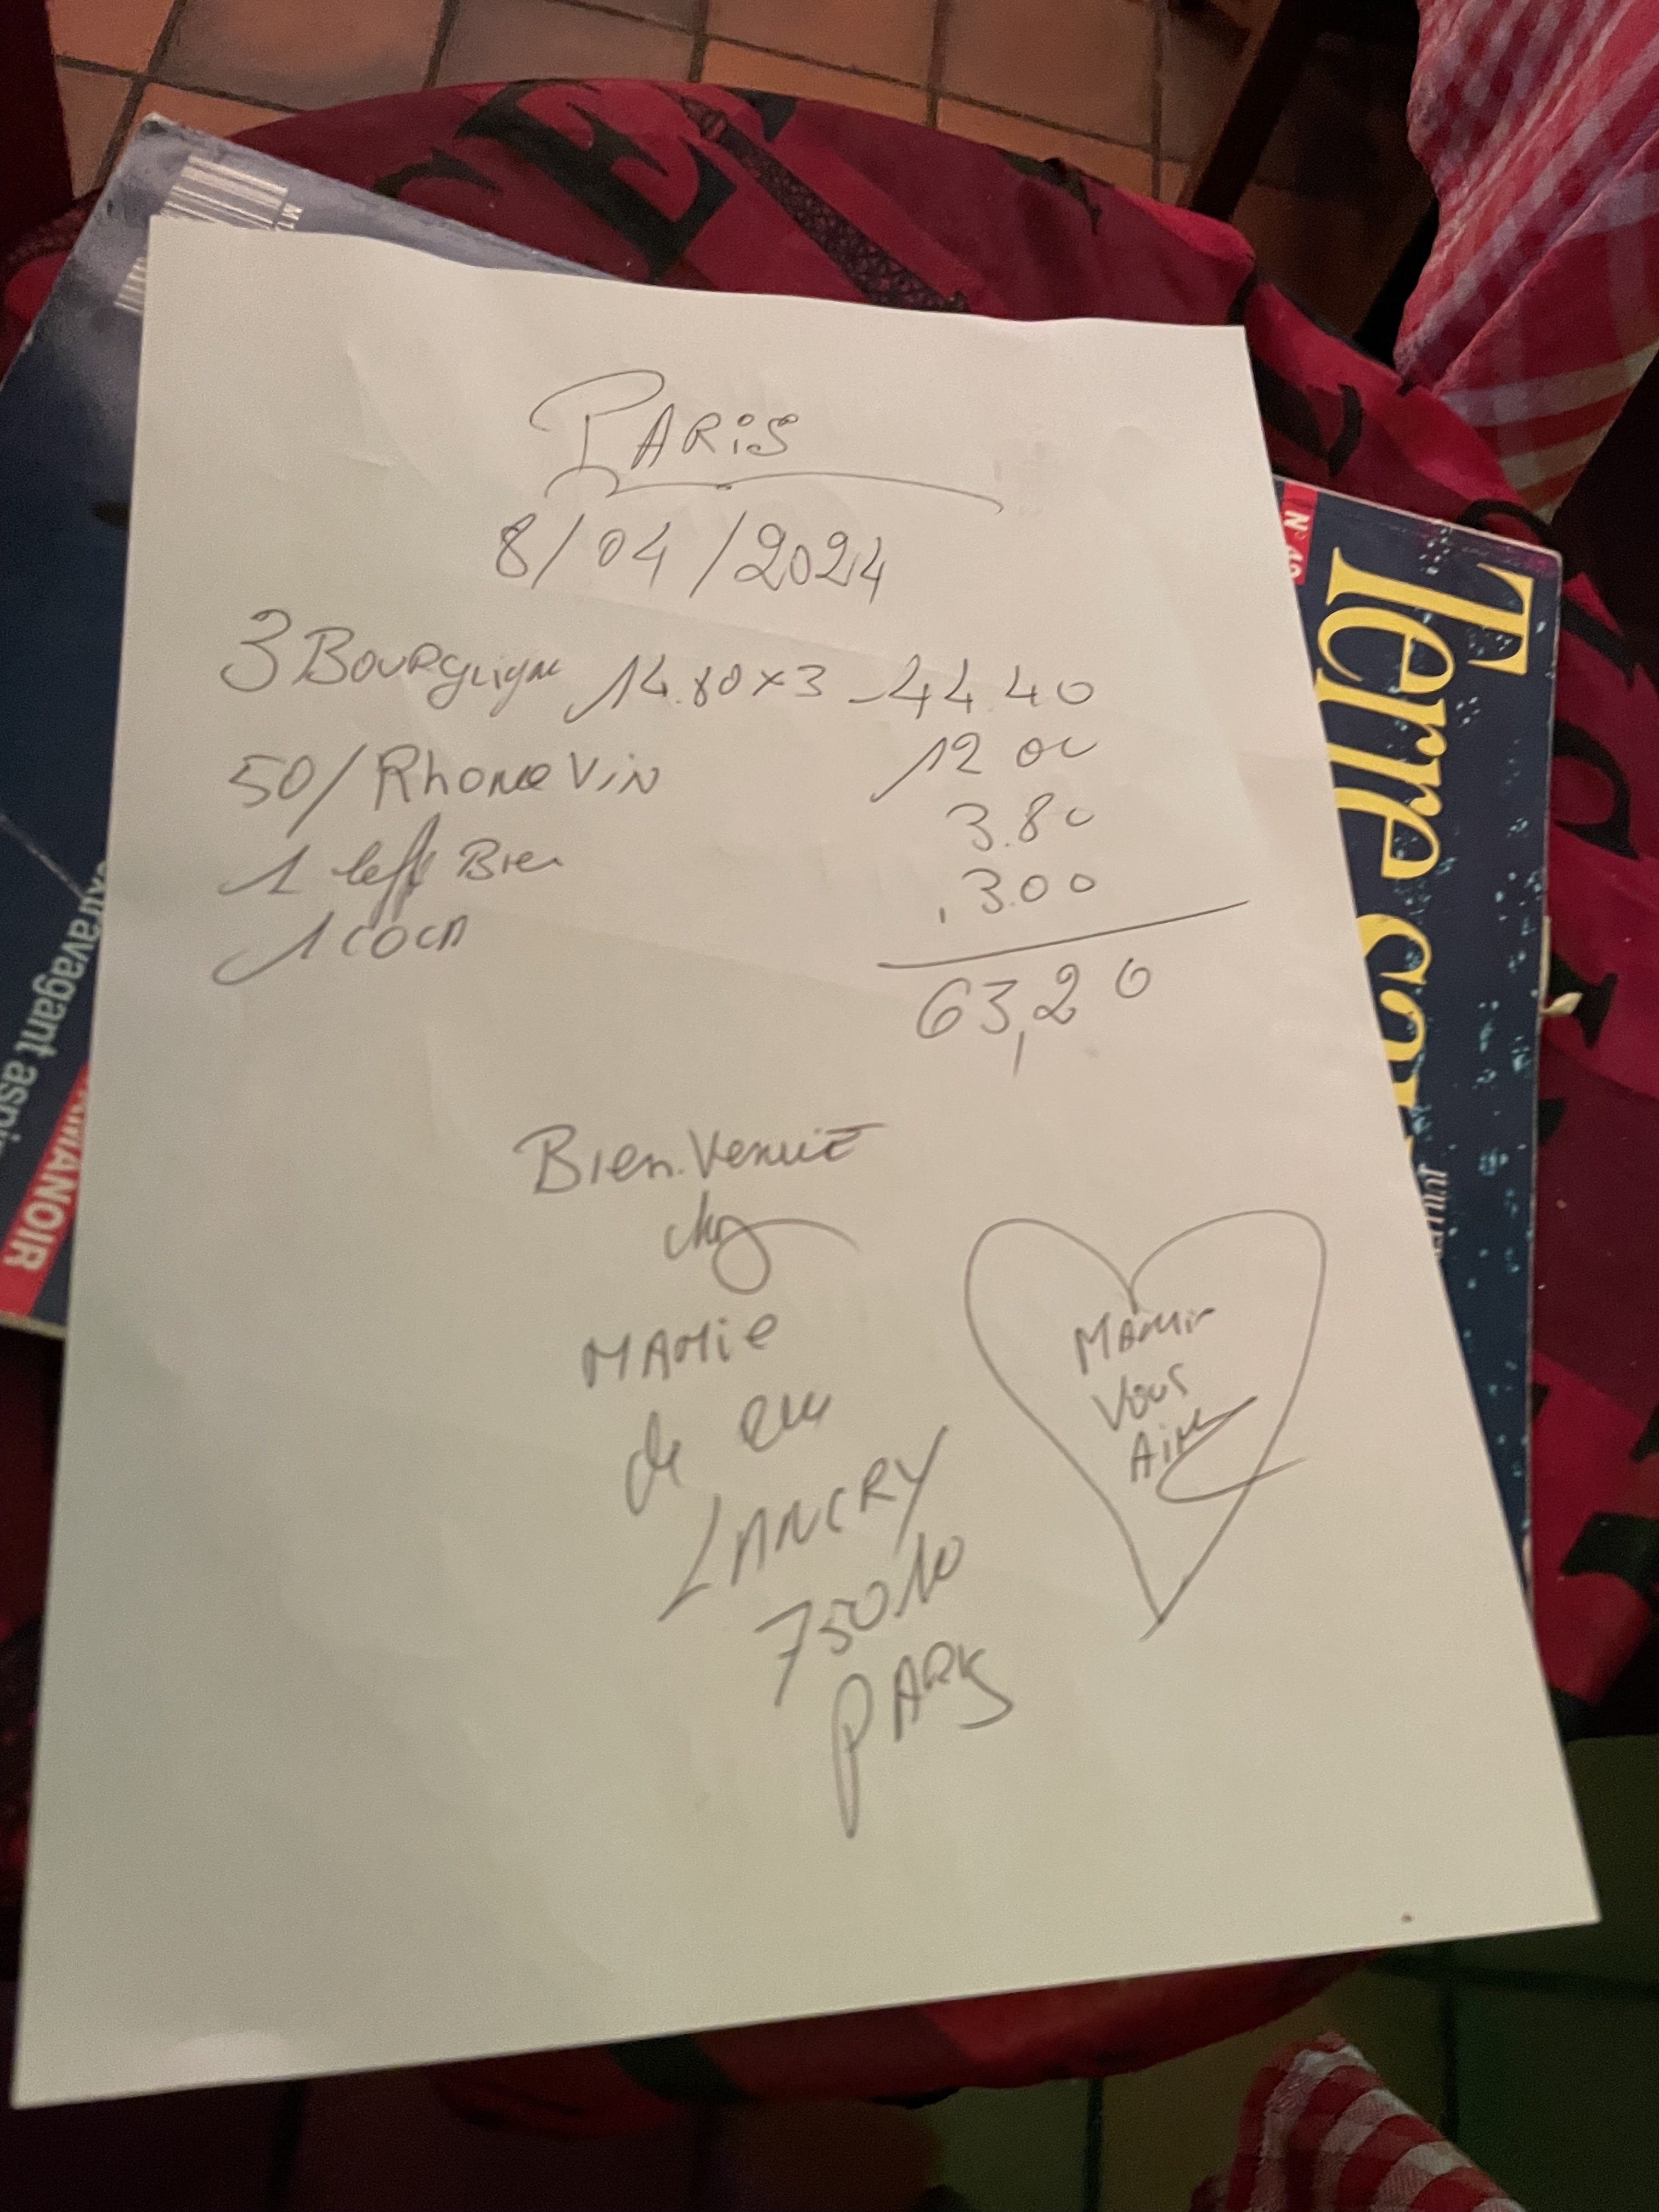 PARiS
8/04/2024
3 Bourguign 14.80 x 3 - 44.40
50/ Rhone Vin 12 00
1 leff Bier 3.80
1 coca 3.00
63,20
Bien.Venue
chz
MAMie
de rue
LANCRY
75010
PARis
Mamie
Vous
Aime
Terre
N°
JUILLET
extravagant
MANOIR